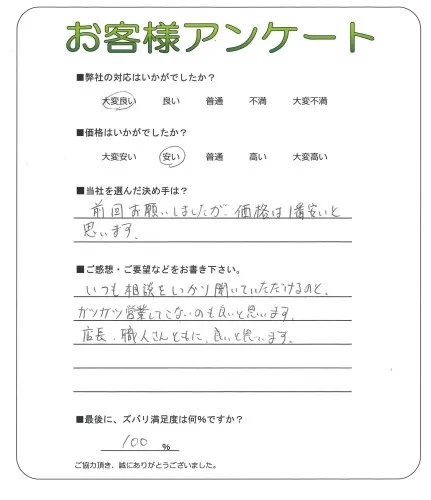 お客様アンケート
■弊社の対応はいかがでしたか?
大変良い 良い 普通 不満 大変不満
■価格はいかがでしたか?
大変安い 安い 普通 高い 大変高い
■当社を選んだ決め手は?
前回お願いしましたが、価格は1番安いと
思います。
■ご感想・ご要望などをお書き下さい。
いつも相談をしっかり聞いていただけるのと、
ガツガツ営業してこないのも良いと思います。
店長、職人さんともに、良いと思います。
■最後に、ズバリ満足度は何%ですか?
100 %
ご協力頂き、誠にありがとうございました。